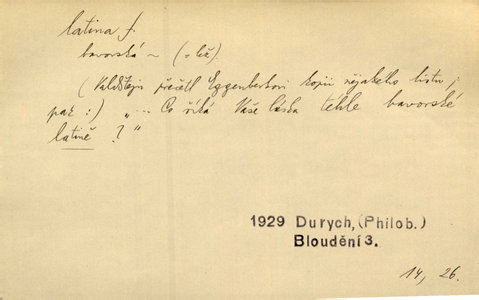 latina f.
bavorská ~ (o lži).
(Valdštejn přečetl Eggenberkovi kopii nějakého listu ;
pak :) „ ... Co říká Vaše láska tehle bavorské
latině ? “
1929 Durych, (Philob.)
Bloudění 3.
14, 26.